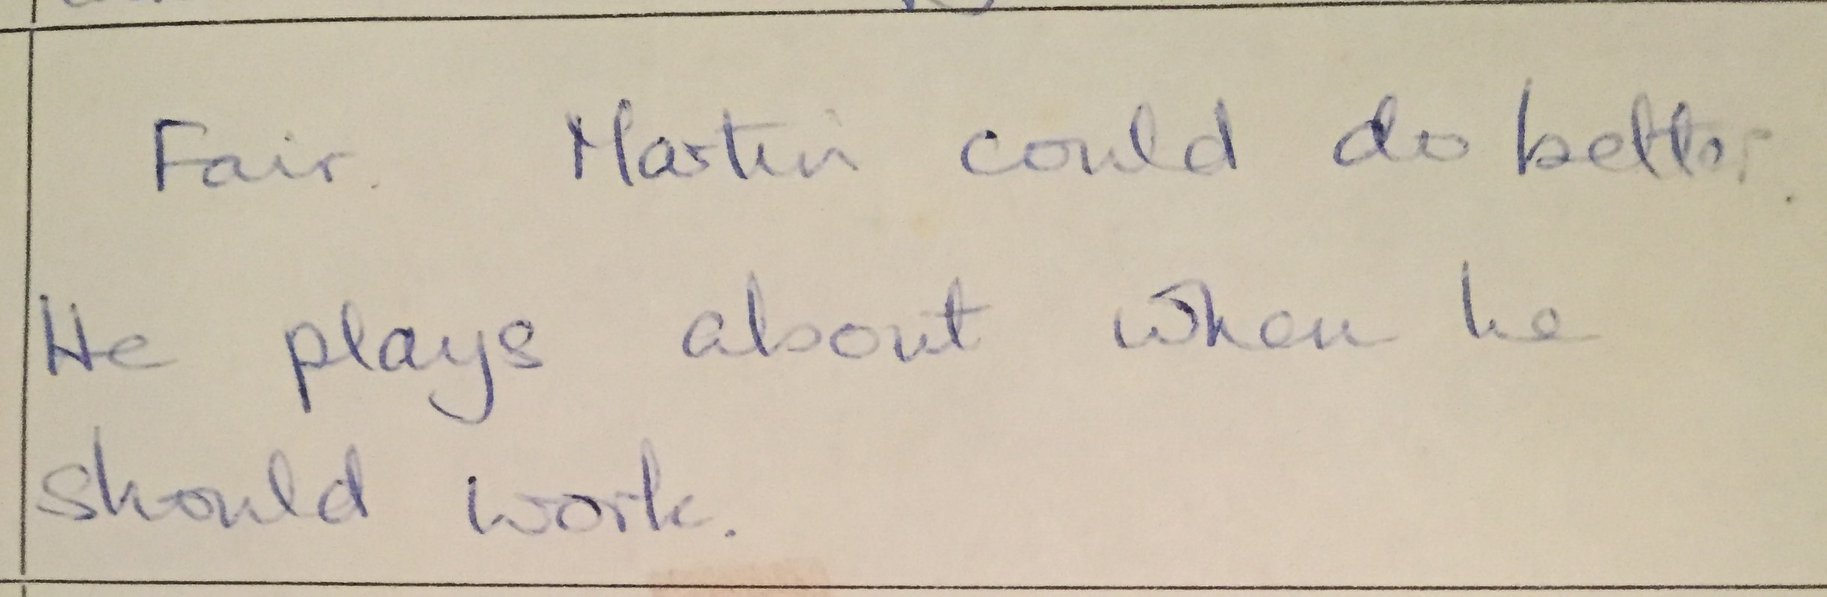 Fair. Martin could do better.
He plays about when he
should work.